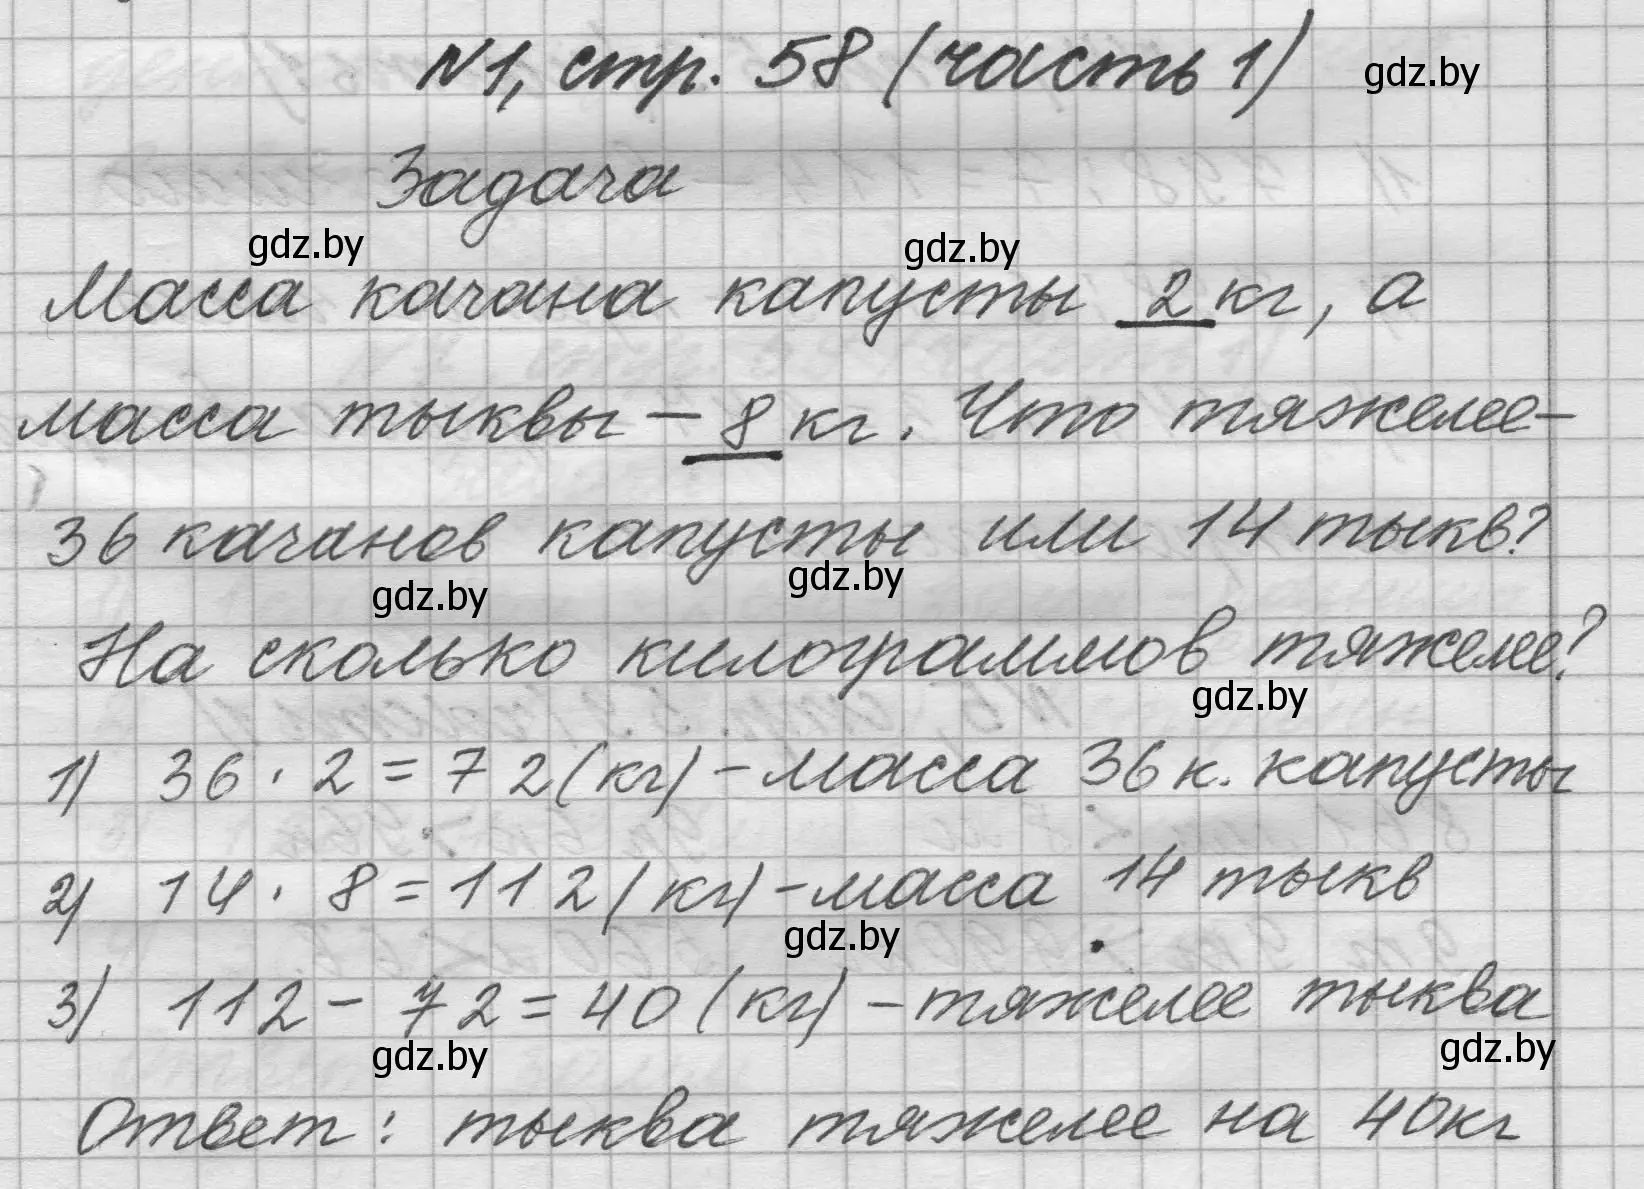 №1, стр. 58 (часть 1)
gdz.by
Задача
gdz.by
gdz.by
Масса качана капусты 2 кг, а
масса тыквы – 8 кг. Что тяжелее –
36 качанов капусты или 14 тыкв?
gdz.by
gdz.by
На сколько килограммов тяжелее?
gdz.by
1) 36 · 2 = 72 (кг) – масса 36 к. капусты
2) 14 · 8 = 112 (кг) – масса 14 тыкв
gdz.by
3) 112 – 72 = 40 (кг) – тяжелее тыква
gdz.by
gdz.by
Ответ: тыква тяжелее на 40 кг